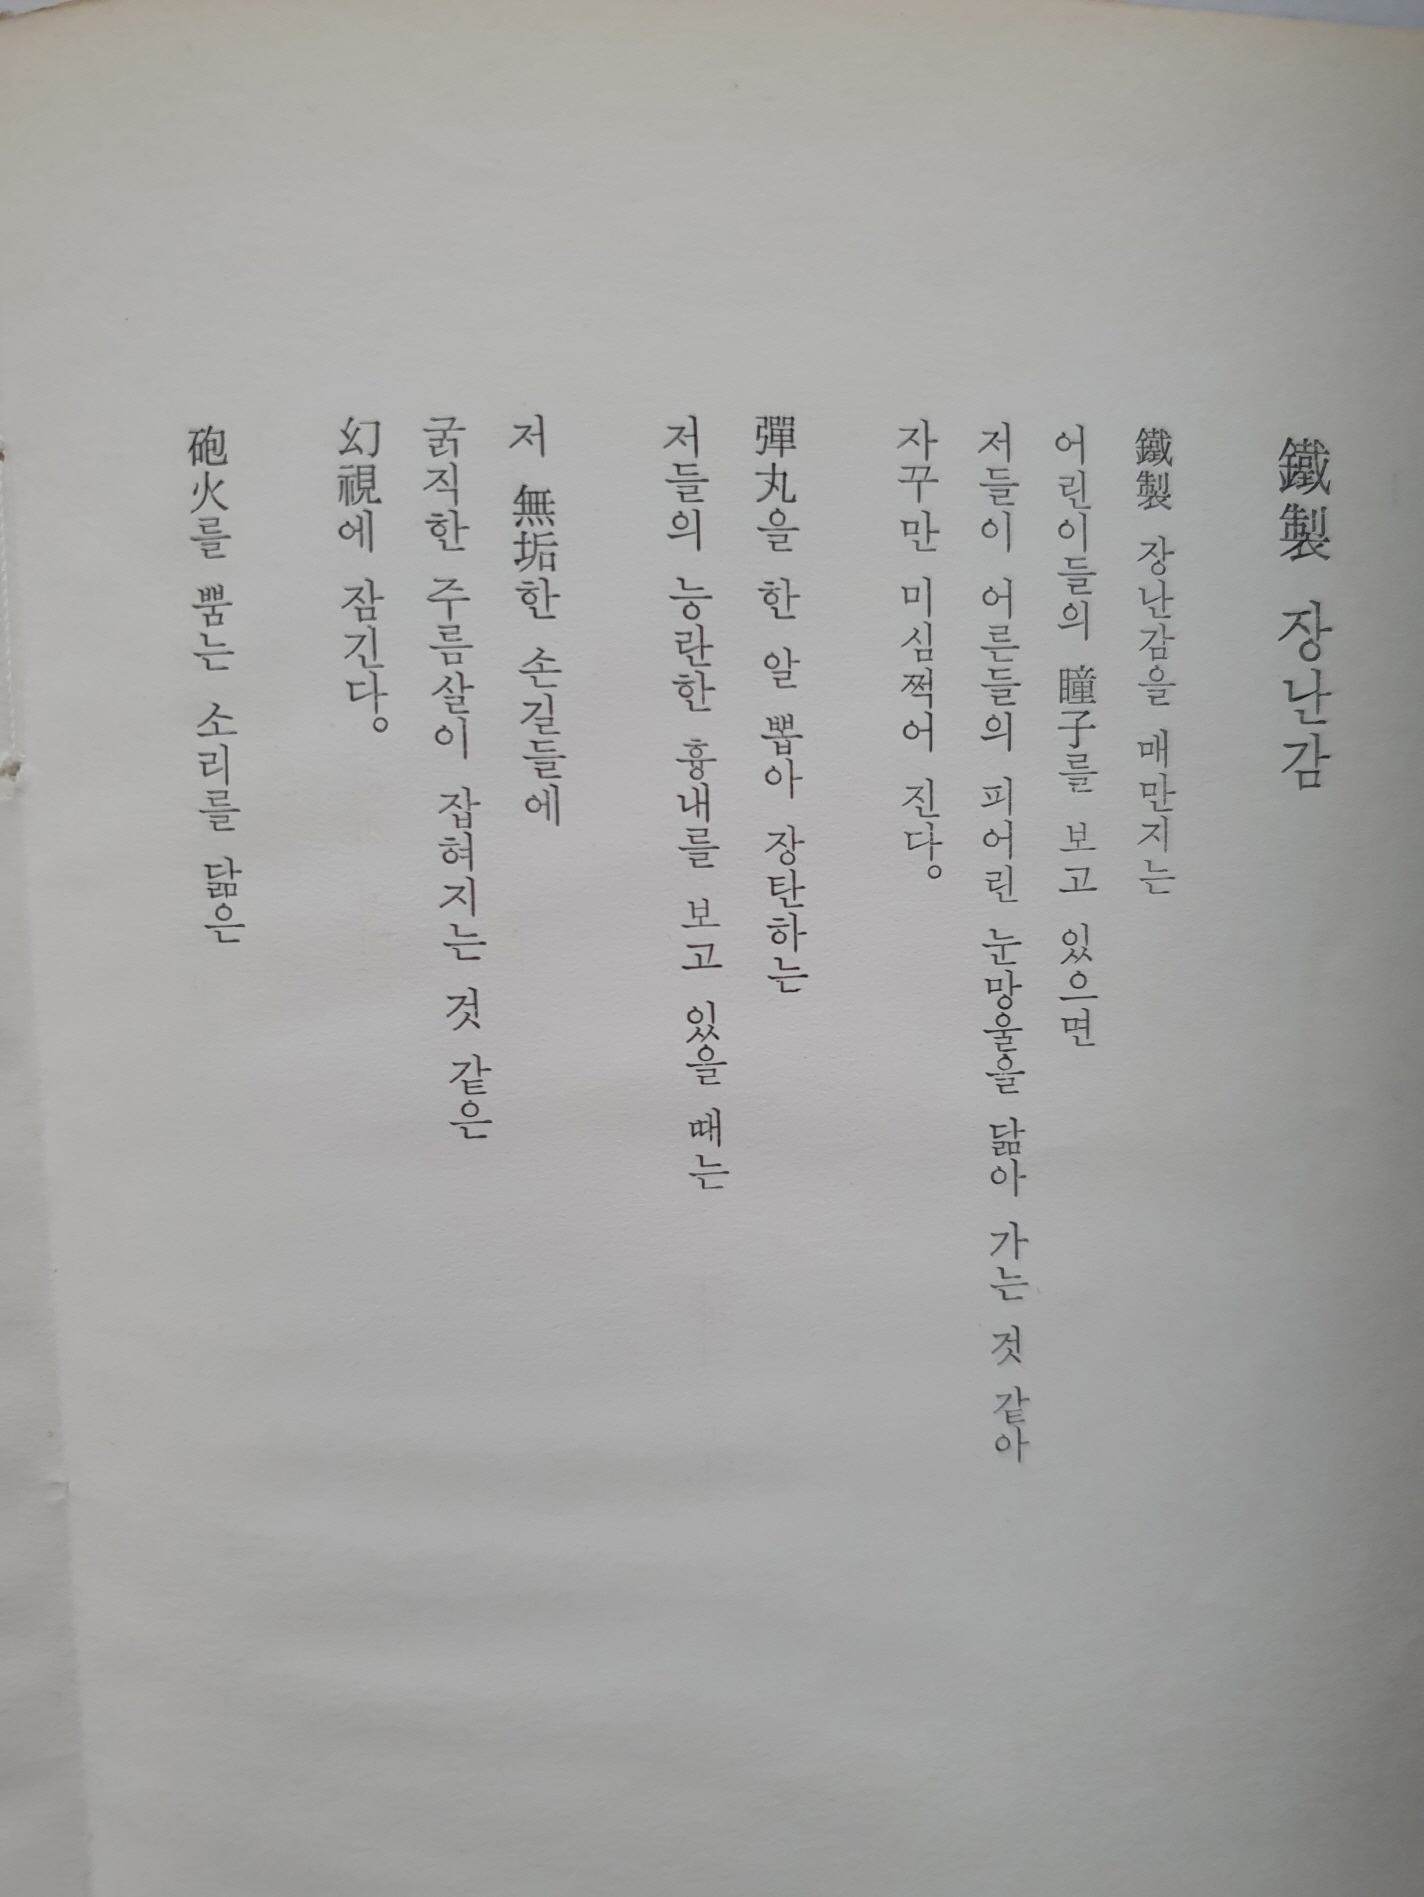 鐵製 장난감
鐵製 장난감을 매만지는
어린이들의 瞳子를 보고 있으면
저들이 어른들의 피어린 눈망울을 닮아 가는 것 같아
자꾸만 미심쩍어 진다。
彈丸을 한 알 뽑아 장탄하는
저들의 능란한 흉내를 보고 있을 때는
저 無垢한 손길들에
굵직한 주름살이 잡혀지는 것 같은
幻視에 잠긴다。
砲火를 뿜는 소리를 닮은